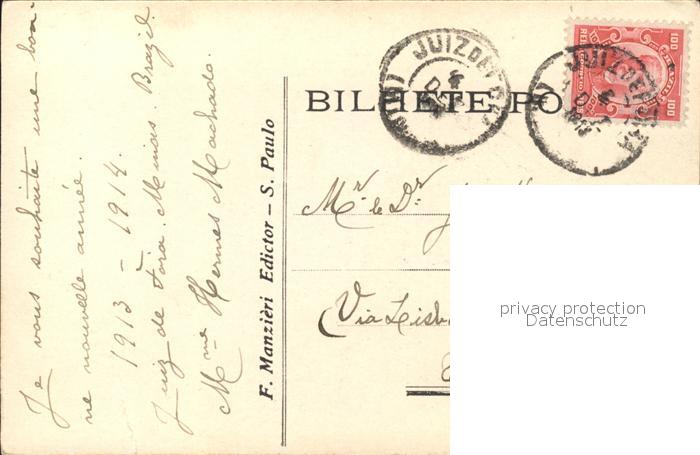 Je vous souhaite une bon-
ne nouvelle année.
1913 - 1914.
Juiz de Fora. Minas. Brazil.
Mme Hermes Machado.
F. Manzièri Edictor – S. Paulo
BILHETE PO
JUIZ DE FORA
JUIZ DE FORA
100 100
BRAZIL
Mr le Dr
Via Lisb
privacy protection
Datenschutz